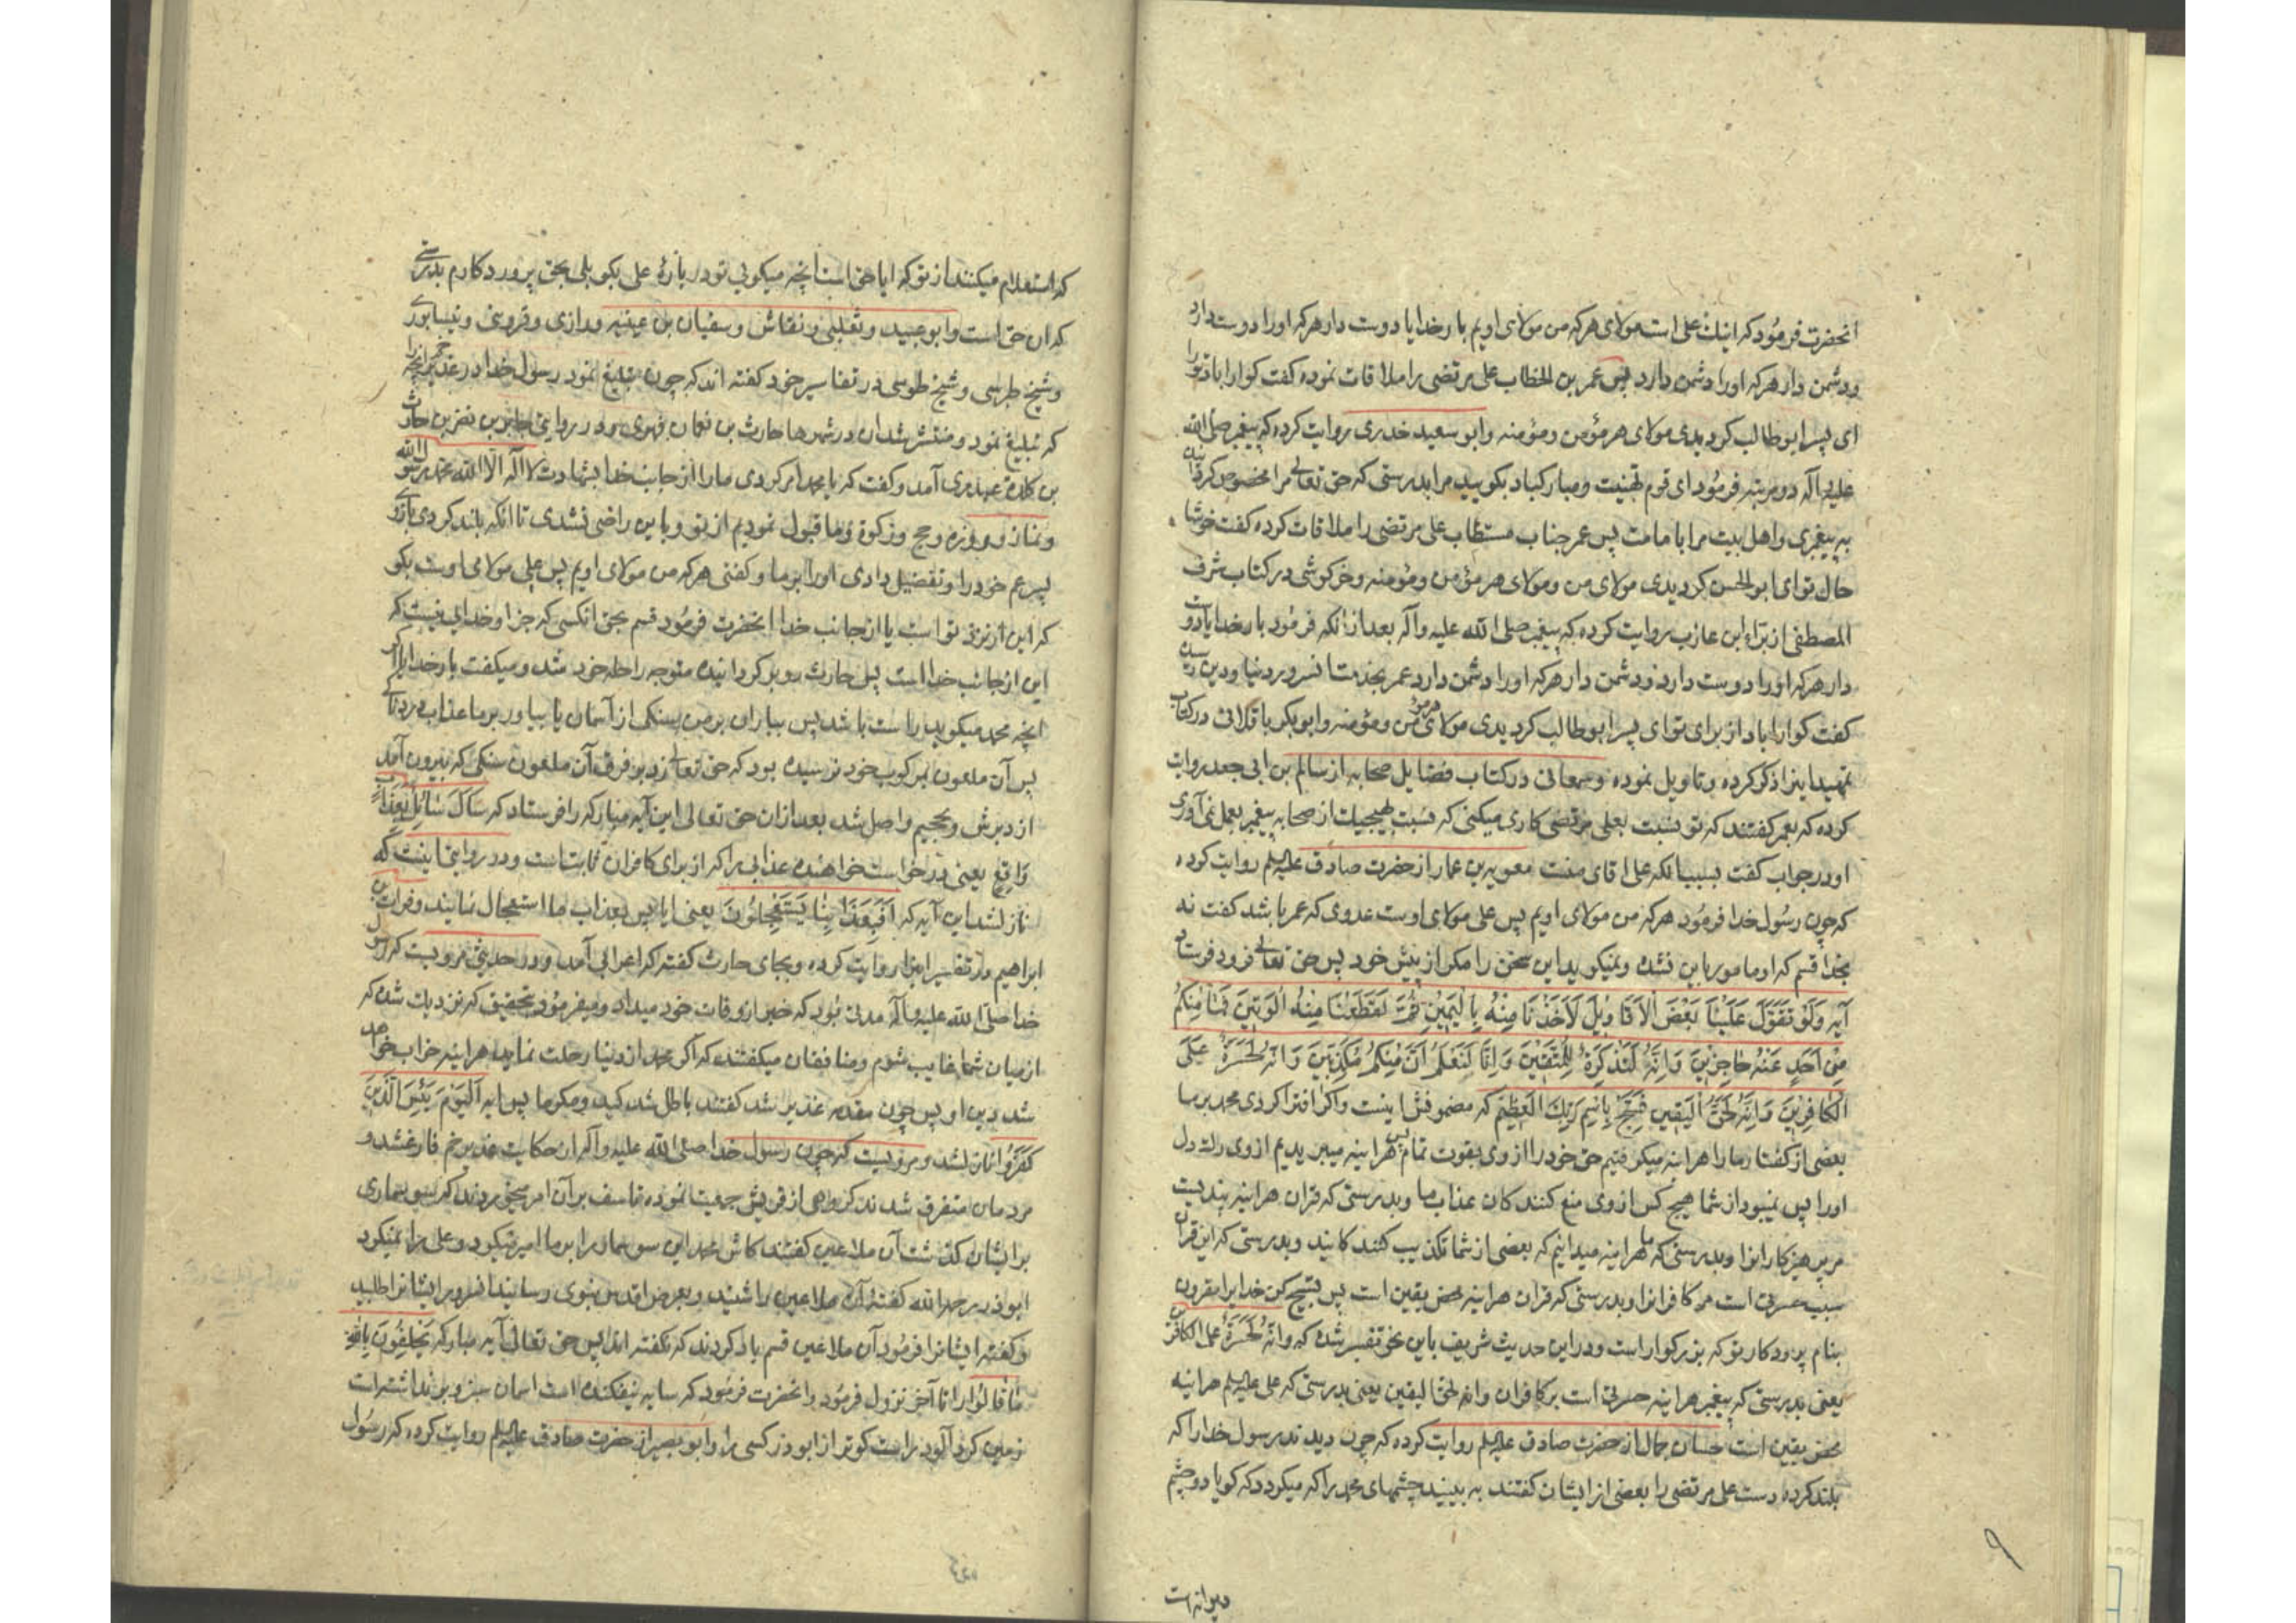 انحضرت فرمود که اینك علی است مولای هرکه من مولای اویم بار خدایا دوست دار هرکه اورا دوست دارد
ودشمن دار هرکه اورا دشمن دارد پس عمر بن الخطاب علی مرتضی را ملاقات نموده گفت کوارا باد تورا
ای پسر ابوطالب کردیدی مولای هر مؤمن ومؤمنه وابو سعید خدری روایت کرده که پیغمبر صلی الله
علیه وآله دو مرتبه فرمود ای قوم تهنیت ومبارکباد بکویید مرا بدرستی که حق تعالی مرا مخصوص کردانید
به پیغمبری واهل بیت مرا بامامت پس عمر جناب مستطاب علی مرتضی را ملاقات کرده گفت خوشا
حال تو ای ابو الحسن کردیدی مولای من ومولای هر مؤمن ومؤمنه وخرکوشی در کتاب شرف
المصطفی از براء ابن عازب روایت کرده که پیغمبر صلی الله علیه وآله بعد از انکه فرمود بار خدایا دوست
دار هرکه اورا دوست دارد ودشمن دار هرکه اورا دشمن دارد عمر بخدمت انسرور دنیا ودین رسید
کفت کوارا باد از برای تو ای پسر ابوطالب کردیدی مولای هر مؤمن ومؤمنه وابوبکر باقلانی در کتاب
تمهید اینرا ذکر کرده وتاویل نموده وسمعانی در کتاب فضایل صحابه از سالم بن ابی جعد روایت
کرده که بعمر کفتند که تو نسبت بعلی مرتضی کاری میکنی که نسبت بهیچیك از صحابه پیغمبر بعمل نمی آوری
او در جواب کفت بسبب انکه علی اقای منست معویه بن عمار از حضرت صادق علیه السلم روایت کرده
که چون رسول خدا فرمود هرکه من مولای اویم پس علی مولای اوست عدوی که عمر باشد کفت نه
بخدا قسم که او مامور باین نشده ونمیکوید این سخن را مکر از پیش خود پس حق تعالی فرود فرستاد
آیه وَلَوْ تَقَوَّلَ عَلَيْنَا بَعْضَ الْاَقَاوِيلَ لَاَخَذْنَا مِنْهُ بِالْيَمِيْنِ ثُمَّ لَقَطَعْنَا مِنْهُ الْوَتِيْنَ فَمَا مِنْكُمْ
مِنْ اَحَدٍ عَنْهُ حَاجِزِيْنَ وَاِنَّهُ لَتَذْكِرَةٌ لِلْمُتَّقِيْنَ وَاِنَّا لَنَعْلَمُ اَنَّ مِنْكُمْ مُكَذِّبِيْنَ وَاِنَّهُ لَحَسْرَةٌ عَلَى
الْكَافِرِيْنَ وَاِنَّهُ لَحَقُّ الْيَقِيْنِ فَسَبِّحْ بِاسْمِ رَبِّكَ الْعَظِيْمِ که مضمونش اینست واکر افترا کردی محمد بر ما
بعضی از کفتارها را هراینه میکرفتیم حق خودرا از وی بقوت تمام پس هراینه میبریدیم از وی رك دل
اورا پس نمیبود از شما هیچ کس از وی منع کنندکان عذاب ما وبدرستی که قران هراینه پندیست
مر پرهیزکارانرا وبدرستی که ما هراینه میدانیم که بعضی از شما تکذیب کنندکانید وبدرستی که این قران
سبب حسرتی است مر کافرانرا وبدرستی که قران هراینه محض یقین است پس تسبیح کن خدایرا مقرون
بنام پروردکار تو که بزرکوار است ودر این حدیث شریف باین نحو تفسیر شده که وانه لحسرة علی الکافرین
یعنی بدرستی که پیغمبر هراینه حسرتی است بر کافران وانه لحق الیقین یعنی بدرستی که علی علیه السلم هراینه
محض یقین است حسان جمال از حضرت صادق علیه السلم روایت کرده که چون دیدند رسول خدارا که
بلند کرده دست علی مرتضی را بعضی از ایشان کفتند به بینید چشمهای محمد را که میکردد که کویا دو چشم
دیوانه است
۹
که استعلام میکنند از تو که ایا حق است انچه میکویی تو در بارهٔ علی بکو بلی بحق پروردکارم بدرستی
که ان حق است وابو عبید وثعلبی ونقاش وسفیان بن عیینه ورازی وقزوینی ونیسابوری
وشیخ طبرسی وشیخ طوسی در تفاسیر خود کفته اند که چون تبلیغ نمود رسول خدا در غدیر خم انچه را
که تبلیغ نمود ومنتشر شد ان در شهرها حارث بن نعمان فهری ودر روایتی جابر بن نضر بن حارث
بن کلده عبدری آمد وکفت که یا محمد امر کردی مارا از جانب خدا بشهادت لا اله الا الله محمد رسول الله
ونماز وروزه وحج وزکوة وما قبول نمودیم از تو وباین راضی نشدی تا انکه بلند کردی بازوی
پسر عم خودرا وتفضیل دادی اورا بر ما وکفتی هرکه من مولای اویم پس علی مولای اوست بکو
که این از نزد تو است یا از جانب خدا انحضرت فرمود قسم بحق انکسی که جز او خدایی نیست که
این از جانب خدا است پس حارث رو بر کردانیده متوجه راحله خود شد ومیکفت بار خدایا اکر
انچه محمد میکوید راست باشد پس بباران بر من سنکی از آسمان یا بیاور بر ما عذاب دردناکی
پس آن ملعون بمرکوب خود نرسیده بود که حق تعالی زد بر فرق آن ملعون سنکی که بیرون آمد
از دبرش وبجحیم واصل شد بعد ازان حق تعالی این آیه مبارکه را فرستاد که سَاَلَ سَائِلٌ بِعَذَابٍ
وَاقِعٍ یعنی در خواست خواهنده عذابی را که از برای کافران ثابت است ودر روایتی اینست که
نازل شد این آیه که اَفَبِعَذَابِنَا يَسْتَعْجِلُوْنَ یعنی ایا پس بعذاب ما استعجال نمایند وفرات بن
ابراهیم در تفسیر اینرا روایت کرده وبجای حارث کفته که اعرابی آمد ودر حدیثی مرویست که رسول
خدا صلی الله علیه وآله مدتی بود که خبر از وفات خود میداد ومیفرمود بتحقیق که نزدیك شده که
از میان شما غایب شوم ومنافقان میکفتند که اکر محمد از دنیا رحلت نماید هراینه خراب خواهد
شد دین او پس چون مقدمه غدیر شد کفتند باطل شد کید ومکر ما پس ایه اَلْيَوْمَ يَئِسَ الَّذِيْنَ
كَفَرُوْا نازل شد ومرویست که چون رسول خدا صلی الله علیه وآله از حکایت غدیر خم فارغ شد و
مردمان متفرق شدند کروهی از قریش جمعیت نموده تاسف بر آن امر میخوردند که سوسماری
بر ایشان کذشت آن ملاعین کفتند کاش محمد این سوسمار را بر ما امیر میکرد وعلی را نمیکرد
ابوذر رحمه الله کفته آن ملاعین را شنید وبعرض اقدس نبوی رسانید انسرور ایشانرا طلبید
وکفته ایشانرا فرمود آن ملاعین قسم یاد کردند که نکفته اند پس حق تعالی آیه مبارکه یَحْلِفُوْنَ بِاللهِ
مَا قَالُوْا را تا آخر نزول فرمود وانحضرت فرمود که سایه نیفکنده است اسمان سبز وبر نداشته است
زمین کرد آلود راست کوتر از ابوذر کسی را وابو بصیر از حضرت صادق علیه السلم روایت کرده که رسول